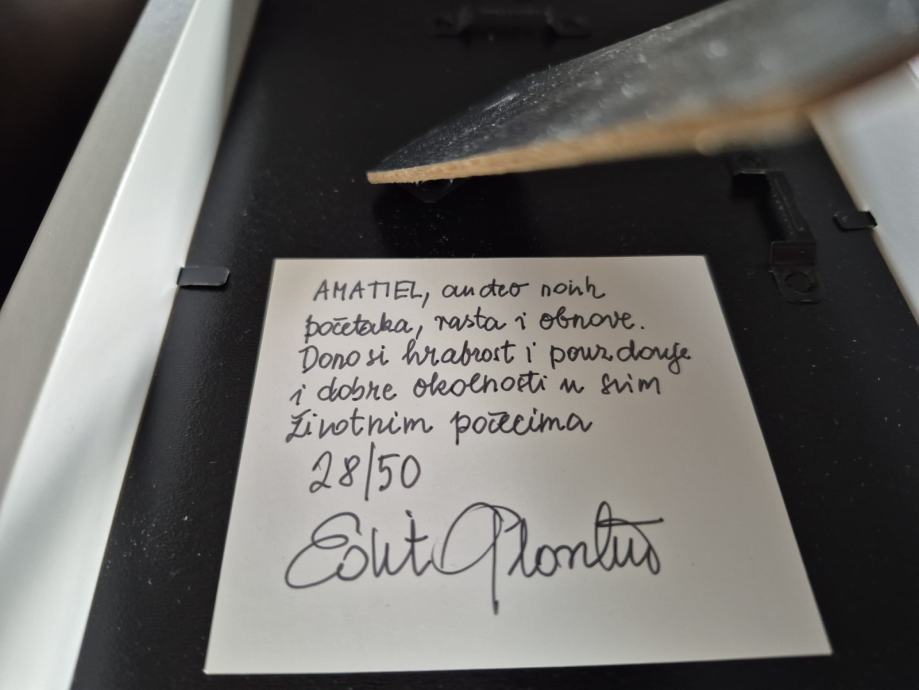 AMATIEL, anđeo novih
početaka, rasta i obnove.
Donosi hrabrost i pouzdanje
i dobre okolnosti u svim
životnim počecima
28/50
Edit